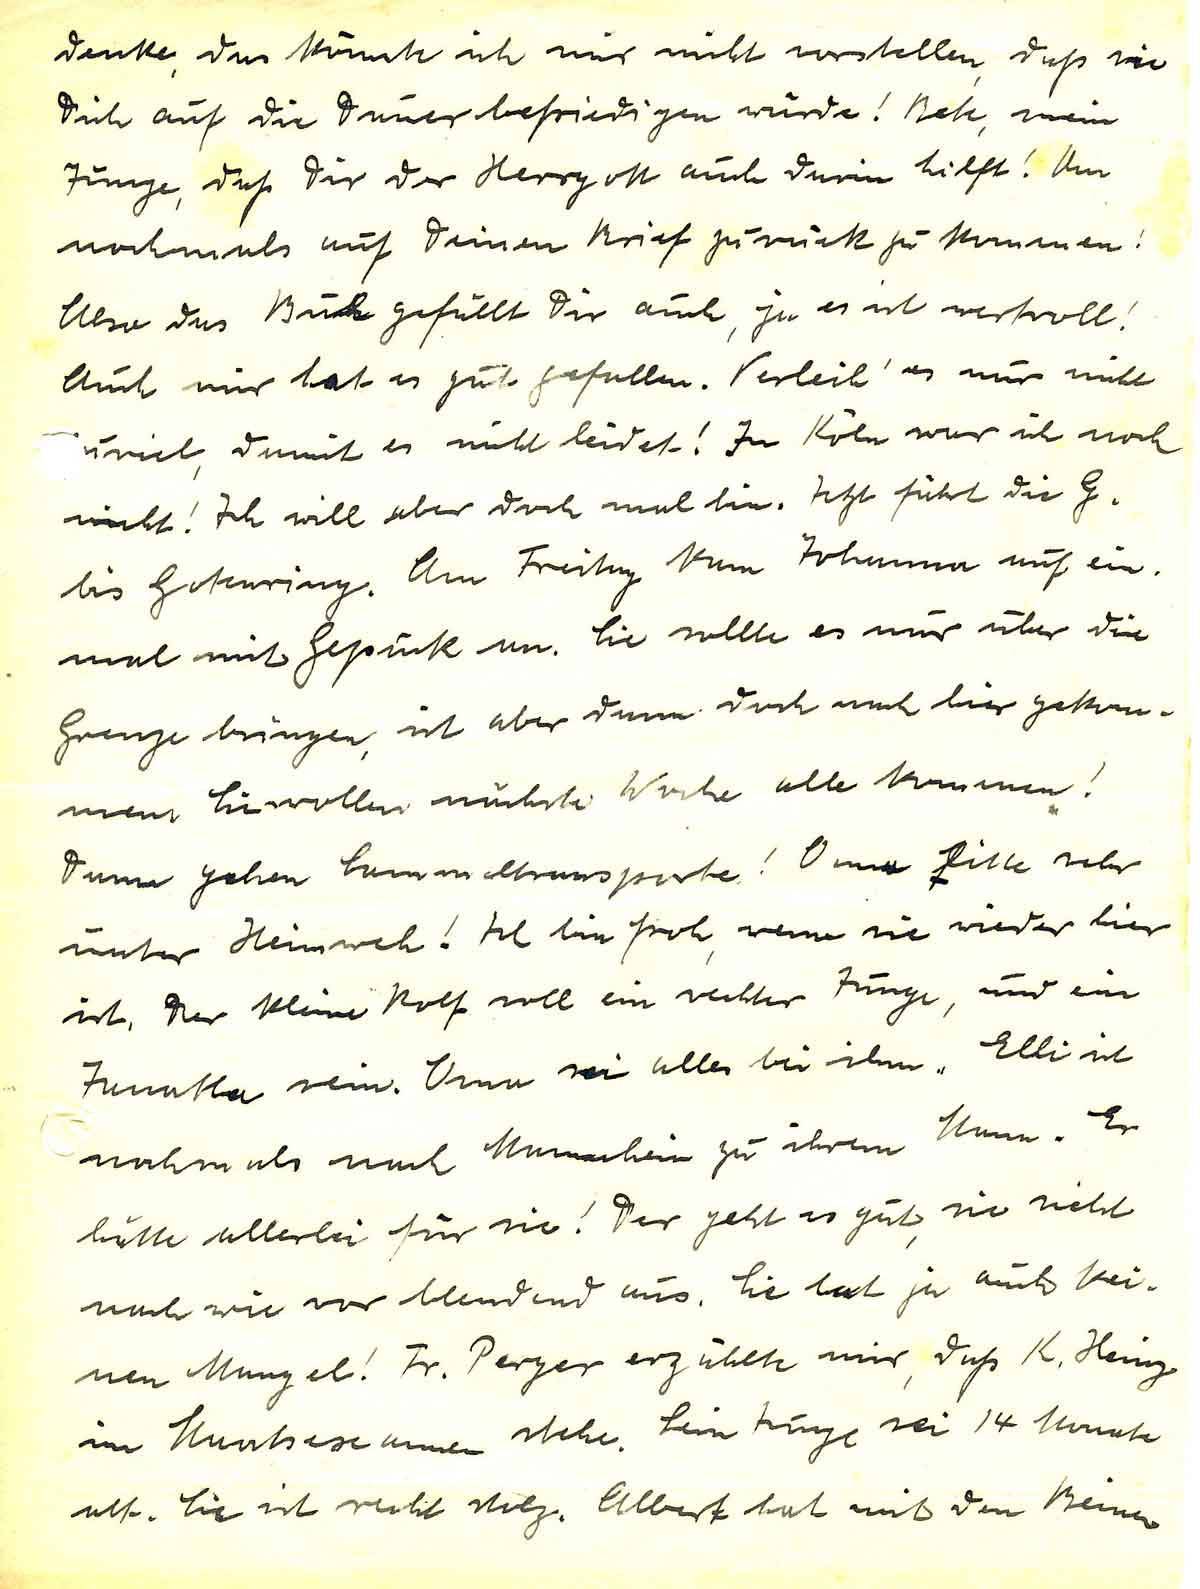 denke, das könnte ich mir nicht vorstellen, daß sie
Dich auf die Dauer befriedigen würde! Bete, mein
Junge, daß Dir der Herrgott auch darin hilft! Um
nochmals auf Deinen Brief zurück zu kommen!
Also das Buch gefällt Dir auch, ja es ist wertvoll!
Auch mir hat es gut gefallen. Verleih' es nur nicht
zuviel, damit es nicht leidet! In Köln war ich noch
nicht! Ich will aber doch mal hin. Jetzt fährt die G.
bis Gotenring. Am Freitag kam Johanna auf ein-
mal mit Gepäck an. Sie sollte es nur über die
Grenze bringen, ist aber dann doch nach hier gekom-
men. Sie wollen nächste Woche alle kommen!
Dann gehen Sammeltransporte! Oma litte sehr
unter Heimweh! Ich bin froh, wenn sie wieder hier
ist. Der kleine Rolf soll ein rechter Junge, und ein
sein. Oma sei alles bei ihm. Elli ist
nochmals nach Mannheim zu ihrem Mann. Er
hätte allerlei für sie! Der geht es gut, sie sieht
nach wie vor blendend aus. Sie hat ja auch kei-
nen Mangel! Fr. Perger erzählte mir, daß K. Heinz
im Staatsexamen stehe. Sein Junge sei 14 Monate
alt. Sie ist recht stolz. Albert hat mit den Beinen